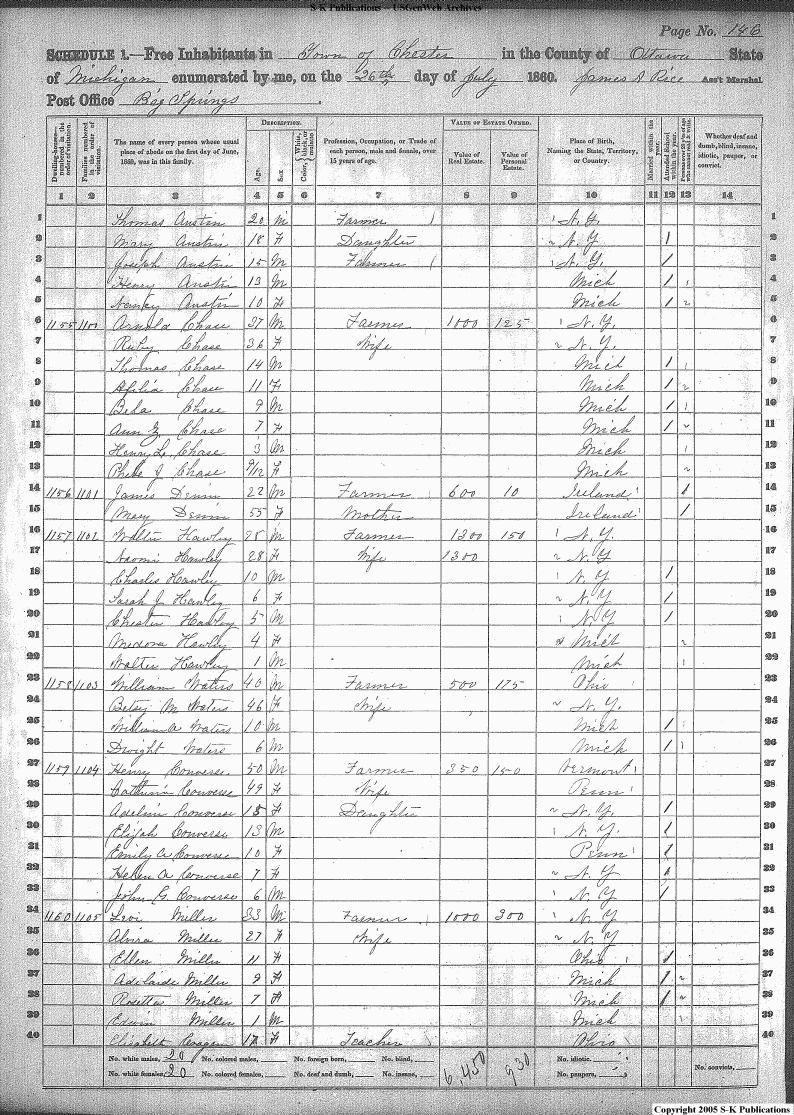 S-K Publications -- USGenWeb Archives
Page No. 146
SCHEDULE 1.—Free Inhabitants in Town of Chester in the County of Ottawa State
of Michigan enumerated by me, on the 26th day of July 1860. James D Rice Ass't Marshal
Post Office Big Springs.
DESCRIPTION. VALUE OF ESTATE OWNED.
Dwelling-houses—numbered in the order of visitation.
Families numbered in the order of visitation.
The name of every person whose usual place of abode on the first day of June, 1860, was in this family.
Age. Sex. Color, White, black, or mulatto.
Profession, Occupation, or Trade of each person, male and female, over 15 years of age.
Value of Real Estate. Value of Personal Estate.
Place of Birth, Naming the State, Territory, or Country.
Married within the year. Attended School within the year.
Whether deaf and dumb, blind, insane, idiotic, pauper, or convict.
1 2 3 4 5 6 7 8 9 10 11 12 13 14
1 Thomas Austin 20 M Farmer N. Y. 1
2 Mary Austin 18 F Daughter N. Y 1 2
3 Joseph Austin 15 M Farmer N. Y. 1 3
4 Henry Austin 13 M Mich 1 4
5 Nancy Austin 10 F Mich 1 5
6 1155 1100 Arnold Chase 37 M Farmer 1000 125 N. Y. 6
7 Ruby Chase 36 F Wife N. Y. 7
8 Thomas Chase 14 M Mich 1 8
9 Chase 11 F Mich 1 9
10 Bela Chase 9 M Mich 1 10
11 Ann Chase 7 F Mich 1 11
12 Henry L. Chase 3 M Mich 12
13 Phebe J Chase 9/12 F Mich 13
14 1156 1101 James 22 M Farmer 600 10 Ireland 1 14
15 Mary 55 F Mother Ireland 1 15
16 1157 1102 Walter Hawley 28 M Farmer 1300 150 N. Y. 16
17 Naomi Hawley 28 F Wife 1300 N. Y 17
18 Charles Hawley 10 M N. Y 1 18
19 Sarah J Hawley 6 F N. Y 1 19
20 Chester Hawley 5 M N. Y 1 20
21 Medora Hawley 4 F Mich 21
22 Walter Hawley 1 M Mich 22
23 1158 1103 William Waters 40 M Farmer 500 175 Ohio 23
24 Betsy M Waters 46 F Wife N. Y. 24
25 William A Waters 10 M Mich 1 25
26 Dwight Waters 6 M Mich 1 26
27 1159 1104 Henry Converse 50 M Farmer 350 150 Vermont 27
28 Catharin Converse 49 F Wife Penn 28
29 Adelin Converse 15 F Daughter N. Y. 1 29
30 Elijah Converse 13 M N. Y. 1 30
31 Emily A Converse 10 F Penn 1 31
32 Helen A Converse 7 F N. Y 1 32
33 John G Converse 6 M N. Y 1 33
34 1160 1105 Levi Miller 33 M Farmer 1000 300 N. Y 34
35 Alvira Miller 27 F Wife N. Y. 35
36 Ellen Miller 11 F Ohio 1 36
37 Adelaide Miller 9 F Mich 1 37
38 Rosetta Miller 7 F Mich 1 38
39 Edwin Miller 1 M Mich 39
40 Elisabeth F Teacher Ohio 40
No. white males, 20 No. colored males, No. foreign born, No. blind, 6,450 930 No. idiotic, No. convicts,
No. white females, 20 No. colored females, No. deaf and dumb, No. insane, No. paupers,
Copyright 2005 S-K Publications